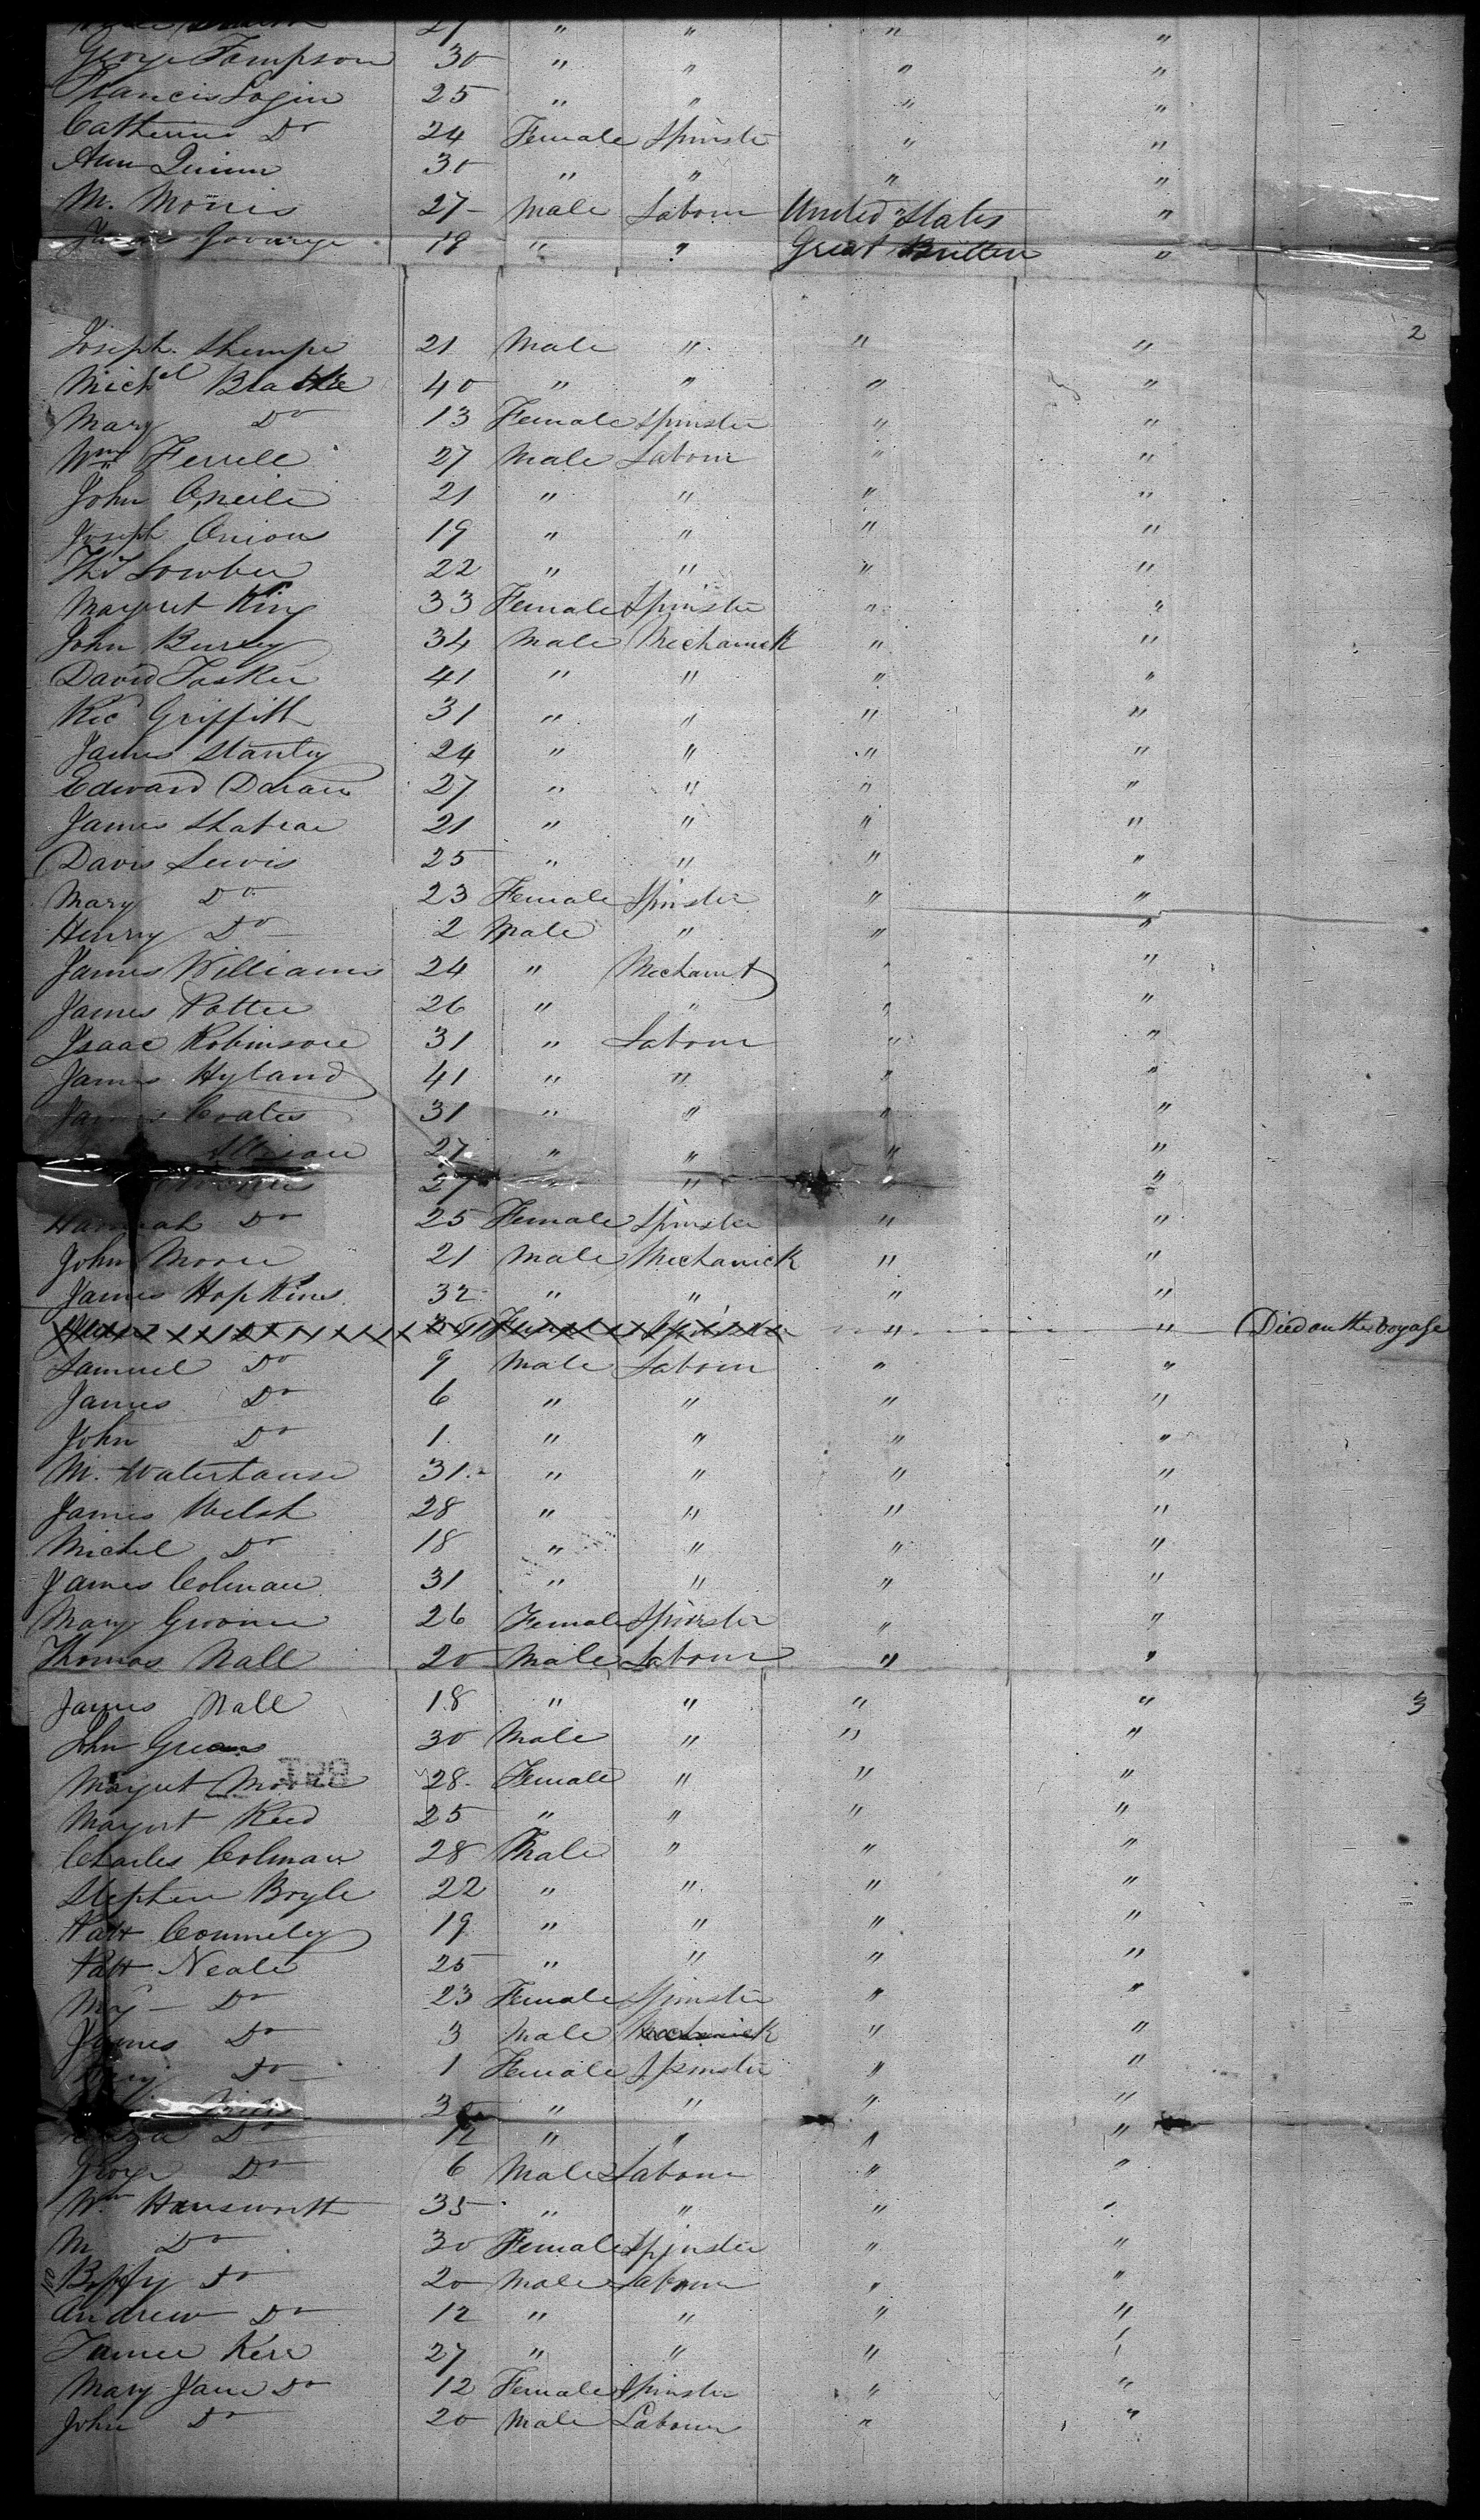 27 " " " "
George Tompson 30 " " " "
Francis Login 25 " " " "
Catherine Do 24 Female Spinster " "
Ann Quinn 30 " " " "
M. Morris 27 Male Labour United States "
18 " " Great Brittan "
2
Joseph 21 Male " " "
Mich'l 40 " " " "
Mary Do 13 Female Spinster " "
Wm Ferrell 27 Male Labour " "
John Oneile 21 " " " "
Joseph Onions 19 " " " "
Thos Lowber 22 " " " "
Margret King 33 Female Spinster " "
John Burley 34 Male Mechanick " "
David Tasker 41 " " " "
Ric Griffith 31 " " " "
James Stanley 24 " " " "
Edward 27 " " " "
James 21 " " " "
Davis Lewis 25 " " " "
Mary Do 23 Female Spinster " "
Henry Do 2 Male " " "
James Williams 24 " " "
James Potter 26 " " " "
Isaac Robinson 31 " Labour " "
James Hyland 41 " " " "
James Coates 31 " " " "
Allison 27 " " " "
27 " " " "
Hannah Do 25 Female Spinster " "
John Moore 21 Male Mechanick " "
James Hopkins 32 " " " "
Do Female Spinster " " Died on the Voyage
Samuel Do 9 Male Labour " "
James Do 6 " " " "
John Do 1 " " " "
M. Waterhouse 31 " " " "
James Welsh 28 " " " "
Michel Do 18 " " " "
James Colman 31 " " " "
Mary 26 Female Spinster " "
Thomas Nall 20 Male Labour " "
James Nall 18 " " " " 3
John Green 30 Male " " "
Margret Moore 28 Female " " "
Margret Reed 25 " " " "
Charles Colman 28 Male " " "
Stephen Boyle 22 " " " "
Patt Conneley 19 " " " "
Patt Neale 25 " " " "
Do 23 Female Spinster " "
James Do 3 Male Mechanick " "
Do 1 Female Spinster " "
" " " "
Do 12 " " " "
George Do 6 Male Labour " "
Wm Hansworth 35 " " " "
M Do 30 Female Spinster " "
Do 20 Male Labour " "
Andrew Do 12 " " " "
Kerr 27 " " " "
Mary Jane Do 12 Female Spinster " "
John Do 20 Male Labour " "